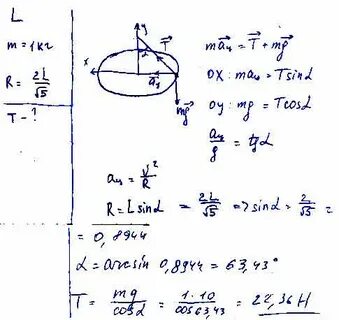 L
m = 1кг
R = 2L/√5
T - ?
y
x
α
T⃗
a⃗ц
mg⃗
ma⃗ц = T⃗ + mg⃗
OX: maц = T sinα
OY: mg = T cosα
aц/g = tgα
aц = V²/R
R = L sinα = 2L/√5 => sinα = 2/√5 =
= 0,8944
α = arcsin 0,8944 = 63,43°
T = mg/cosα = 1·10/cos 63,43 = 22,36 Н